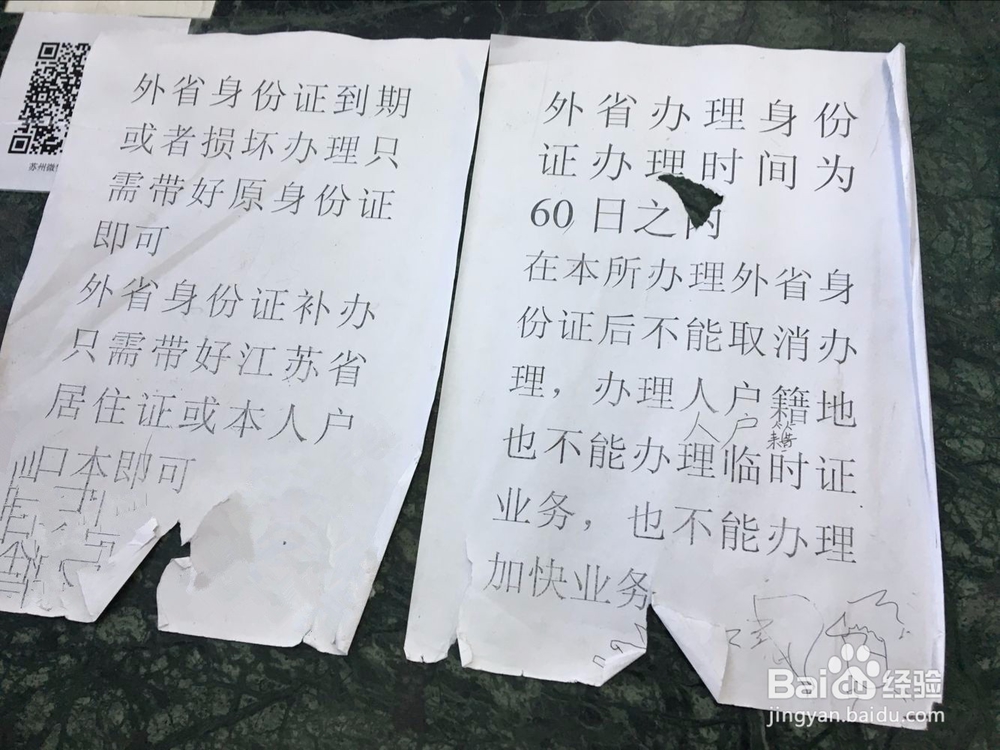 苏州微
外省身份证到期
或者损坏办理只
需带好原身份证
即可
外省身份证补办
只需带好江苏省
居住证或本人户
口本即可
外省办理身份
证办理时间为
60日之内
在本所办理外省身
份证后不能取消办
理，办理人户籍地
人户籍
也不能办理临时证
业务，也不能办理
加快业务
Baidu 经验
jingyan.baidu.com